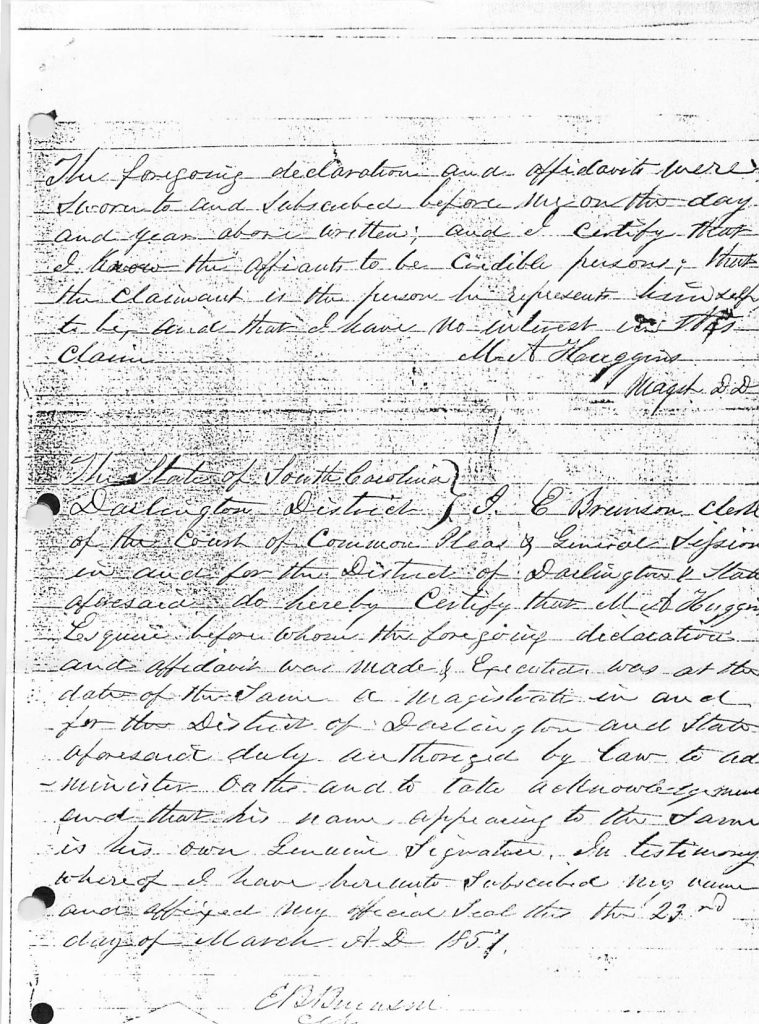 The foregoing declaration and affidavits were
sworn to and subscribed before me, on the day
and year above written; and I certify that
I know the affiants to be credible persons; that
the claimant is the person he represents himself
to be, and that I have no interest in this
claim. M. A Huggins
Magst. D. D
The State of South Carolina }
Darlington District } I. E Brunson clerk
of the Court of Common Pleas & General Session
in and for the District of Darlington & State
aforesaid do hereby Certify that M A Huggin
Esquire before whom the foregoing declaration
and affidavit was made & Executed was at the
date of the Same a magistrate in and
for the District of Darlington and State
aforesaid duly authorized by law to ad
-minister oaths and to take acknowledgement
and that his name appearing to the Same
is his own Genuine Signature. In testimony
whereof I have hereunto Subscribed my name
and affixed my official Seal this the 23rd
day of March A D 1857.
E B Brunson